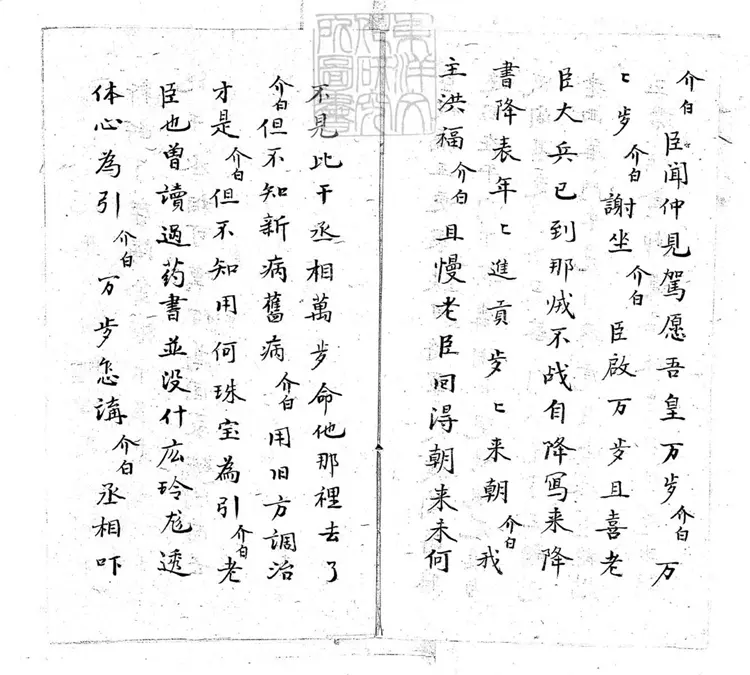 介白臣闻仲見駕愿吾皇万歩介白万
〻歩介白謝坐介白臣啟万歩且喜老
臣大兵已到那城不战自降写来降
書降表年〻進貢歩〻来朝介白我
主洪福介白且慢老臣囬得朝来未何
不見比干丞相萬歩命他那裡去了
介白但不知新病舊病介白用旧方調治
才是介白但不知用何珠宝為引介白老
臣也曽讀過药書並没什広玲珑透
体心為引介白万歩怎講介白丞相吓
東洋文化研究所圖書